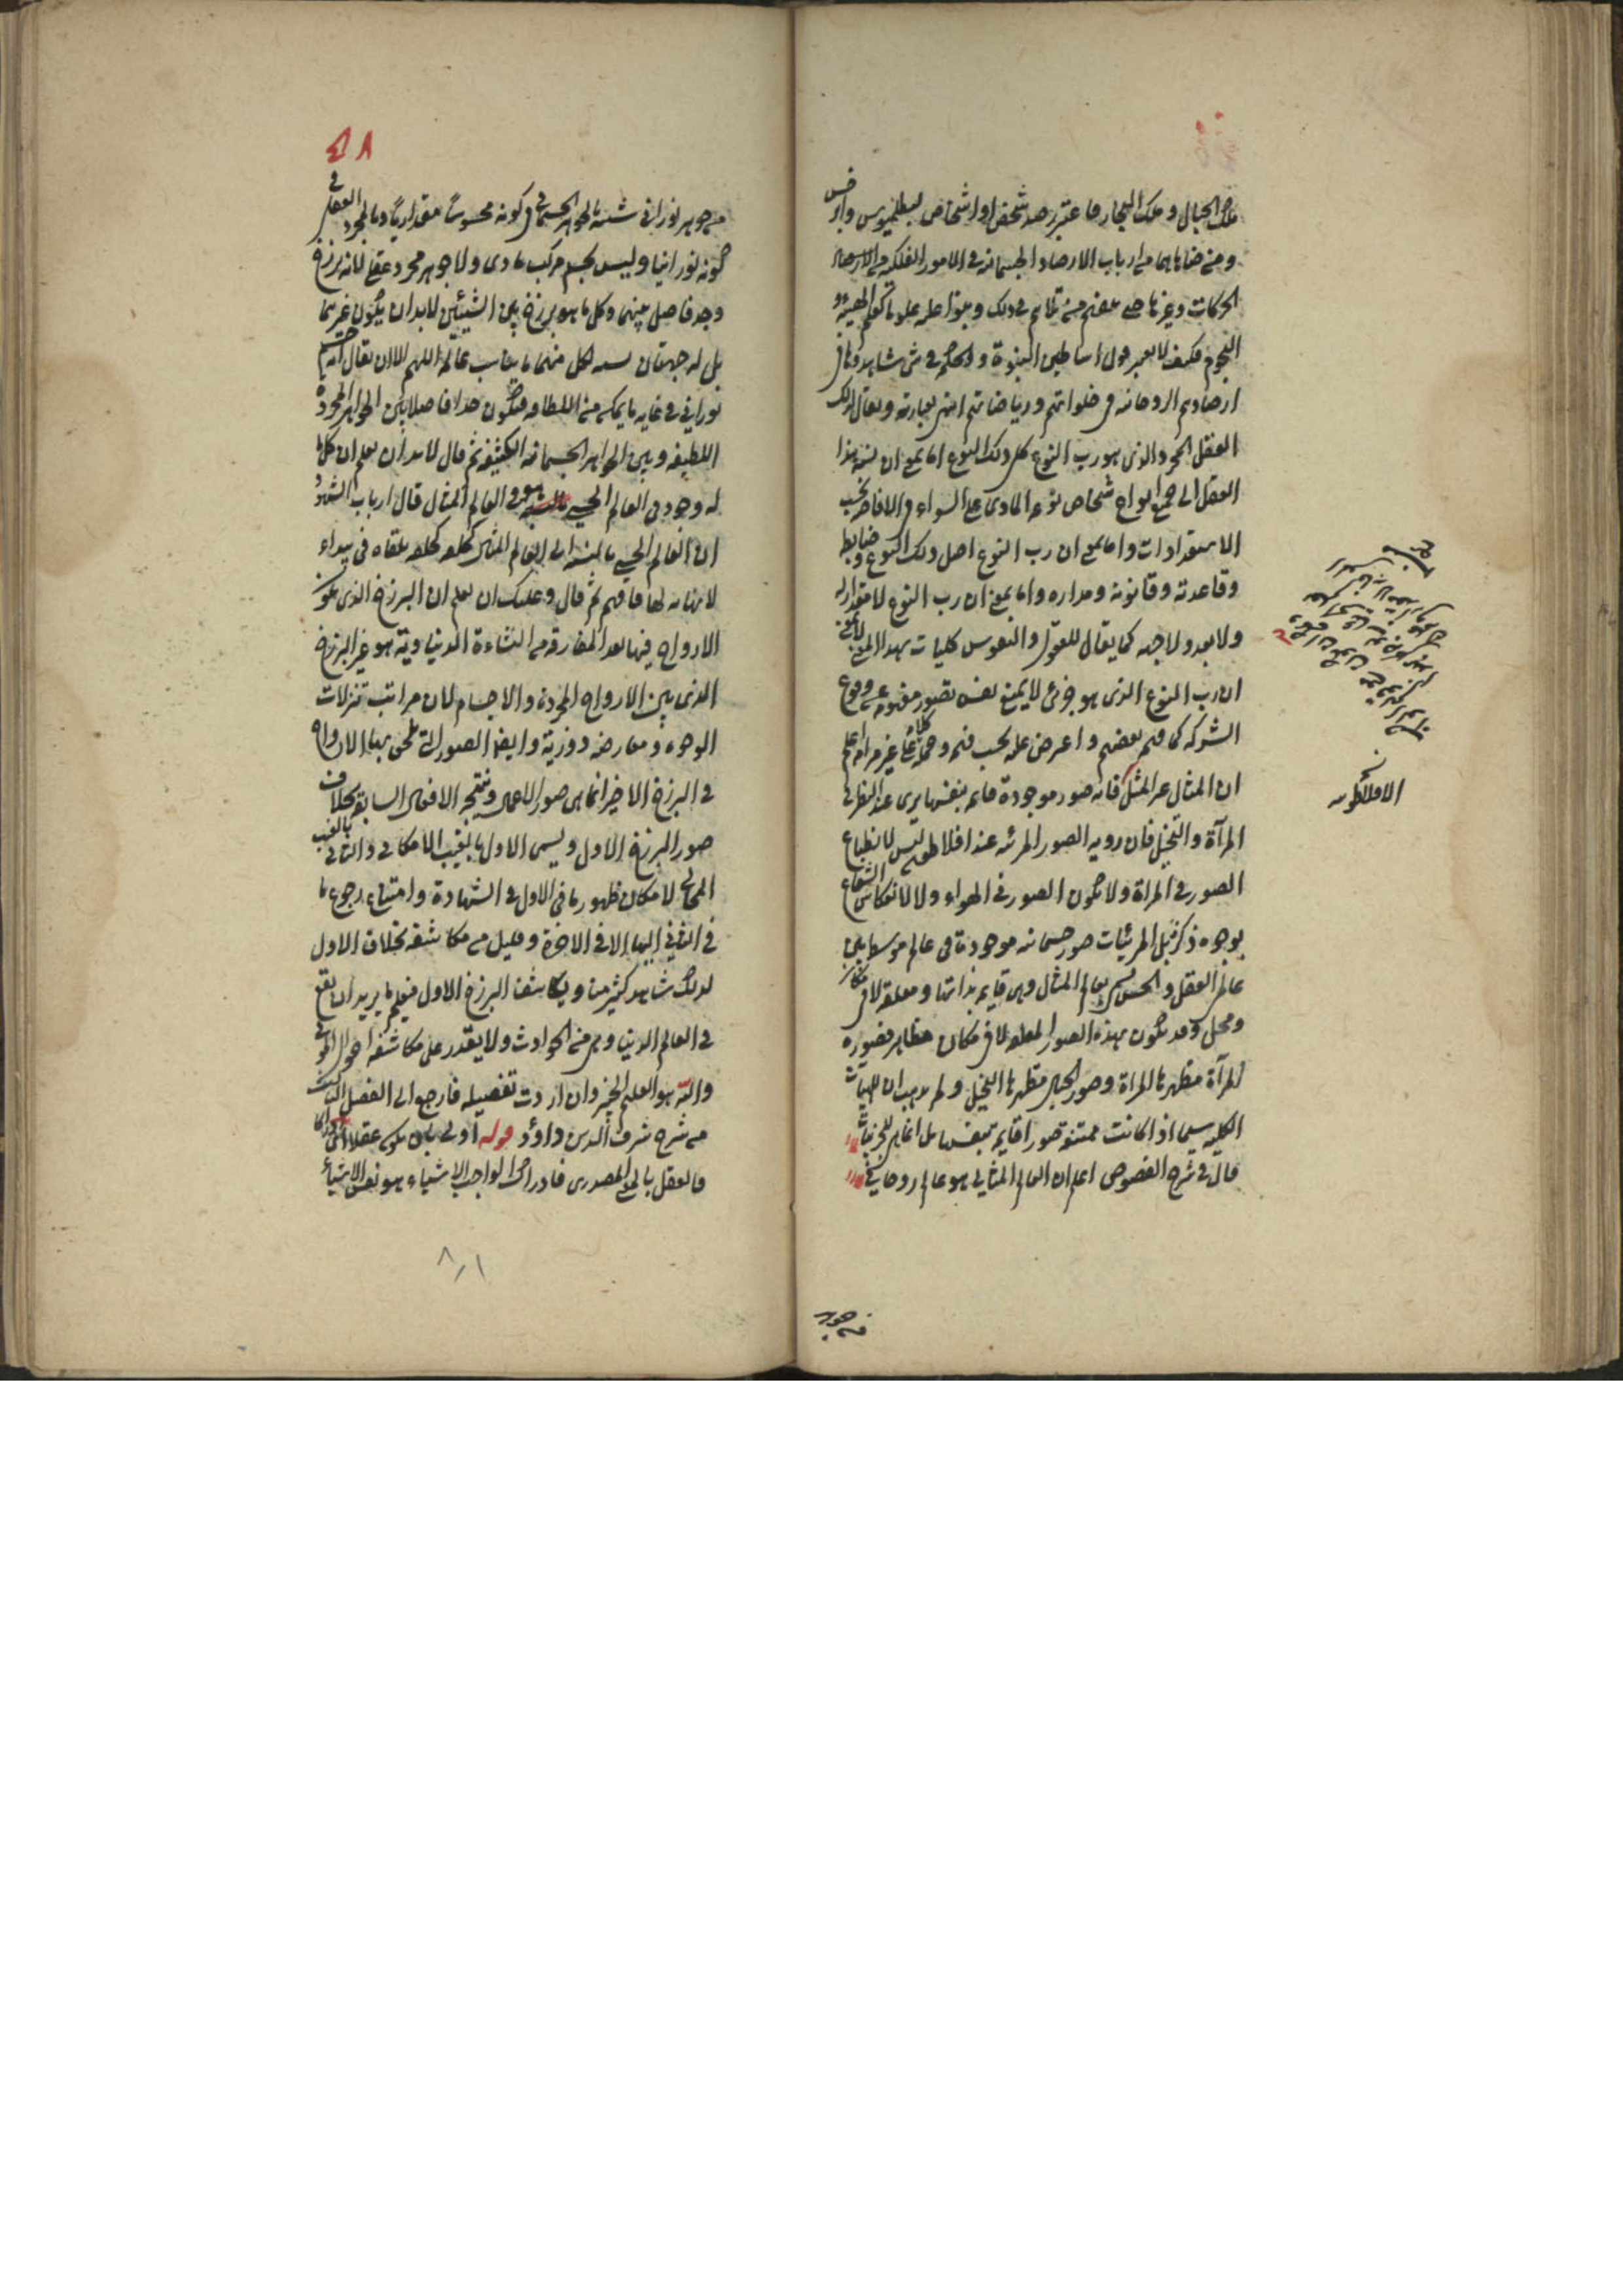 ملك الجبال وملك البحار فاعتبر رصد شخص او اشخاص لبطلميوس وابرخس
ومن ضاهاهما من ارباب الارصاد الجسمانية في الامور الفلكية
الحركات وغيرها حتى في ذلك علوما كعلم الهيئة و
النجوم فكيف لا يعتبر قول اساطين النبوة والحكمة في شئ شاهدوها في
ارصادهم الروحانية في خلواتهم ورياضاتهم انتهى بعبارته ويقال لذلك
العقل المجرد الذي هو رب النوع كلي ذلك النوع اما بمعنى ان نسبة هذا
العقل الى جميع اشخاص نوعه المادي على السواء في الافاضة بحسب
الاستعدادات واما بمعنى ان رب النوع اصل ذلك النوع وضابطه
وقاعدته وقانونه ومداره واما بمعنى ان رب النوع لا مقدار له
ولا بعد ولا جهة كما يقال للعقول والنفوس كليات بهذا المعنى لا بمعنى
ان رب النوع الذي هو جزئي لا يمنع نفس تصور مفهومه عن وقوع
الشركة كما فهم بعضهم واعترض عليه بحسب فهمه وحمله كلامه على غير مرامه اعلم
ان المثال غير المثل فانه صور موجودة قائمة بنفسها يرى عند النظر في
المرآة والتخيل فان روية الصور المرئية عند افلاطون ليس لانطباع
الصور في المرآة ولا تكون الصور في الهواء ولا لانعكاس الشعاع
بوجوه ذكر بل المرئيات صور جسمانية موجودة في عالم متوسط بين
عالم العقل والحس يسمى بعالم المثال وهي قايمة بذاتها ومعلقة لا في مكان
ومحل وقد تكون لهذه الصور المعلقة لا في مكان مظاهر فصورة
المرآة مظهرها المرآة وصور الخيال مظهرها التخيل ولم يذهب ان للمهيات
الكلية سيما اذا كانت ممتنعة صورا قايمة بنفسها بل انما هي للجزئيات
قال في شرح الفصوص اعلم ان العالم المثالي هو عالم روحاني
من جوهر
الافلاطونية
٤٨
من جوهر نوراني شبيه بالجوهر الجسماني في كونه محسوسا مقداريا وبالمجرد العقلي في
كونه نورانيا وليس بجسم مركب مادي ولا جوهر مجرد عقلي لانه برزخ
وحد فاصل بينهما وكل ما هو برزخ بين الشيئين لا بد ان يكون غيرهما
بل له جهتان يشبه لكل منهما ما يناسب عالمه اللهم الا ان يقال انه جسم
نوراني في غاية ما يمكن من اللطافة فيكون حدا فاصلا بين الجواهر المجردة
اللطيفة وبين الجواهر الجسمانية الكثيفة ثم قال لا بد ان يعلم ان كل ما
له وجود في العالم الحسي هو في العالم المثالي قال ارباب الشهود
ان العالم الحسي بالنسبة الى العالم المثالي كحلقة ملقاة في بيداء
لا نهاية لها فافهم ثم قال وعليك ان تعلم ان البرزخ الذي يكون
الارواح فيها بعد المفارقة من النشاءة الدنياوية هو غير البرزخ
الذي بين الارواح المجردة والاجسام لان مراتب تنزلات
الوجود ومعارجه دورية وايضا الصور التي تلحق بها الارواح
في البرزخ الاخير انما هي صور الاعمال ونتيجة الافعال السابقة بخلاف
صور البرزخ الاول ويسمى الاول بالغيب الامكاني والثاني بالغيب
المحالي لامكان ظهور ما في الاول في الشهادة وامتناع رجوع ما
في الثاني اليها الا في الاخرة وقليل من مكاشفه بخلاف الاول
لذلك شاهد كثير منا ويكاشف البرزخ الاول فيعلم ما يريد ان يقع
في العالم الدنياوي من الحوادث ولا يقدر على مكاشفة احوال الموتى
والله هو العليم الخبير وان اردت تفصيله فارجع الى الفصل الثالث
من شرح شرف الدين داوود قوله اولى بان يكون عقلا اي ادراكا
فالعقل بالمعنى المصدري فادراك الواجب الاشياء هو نفس الاشياء
٨١